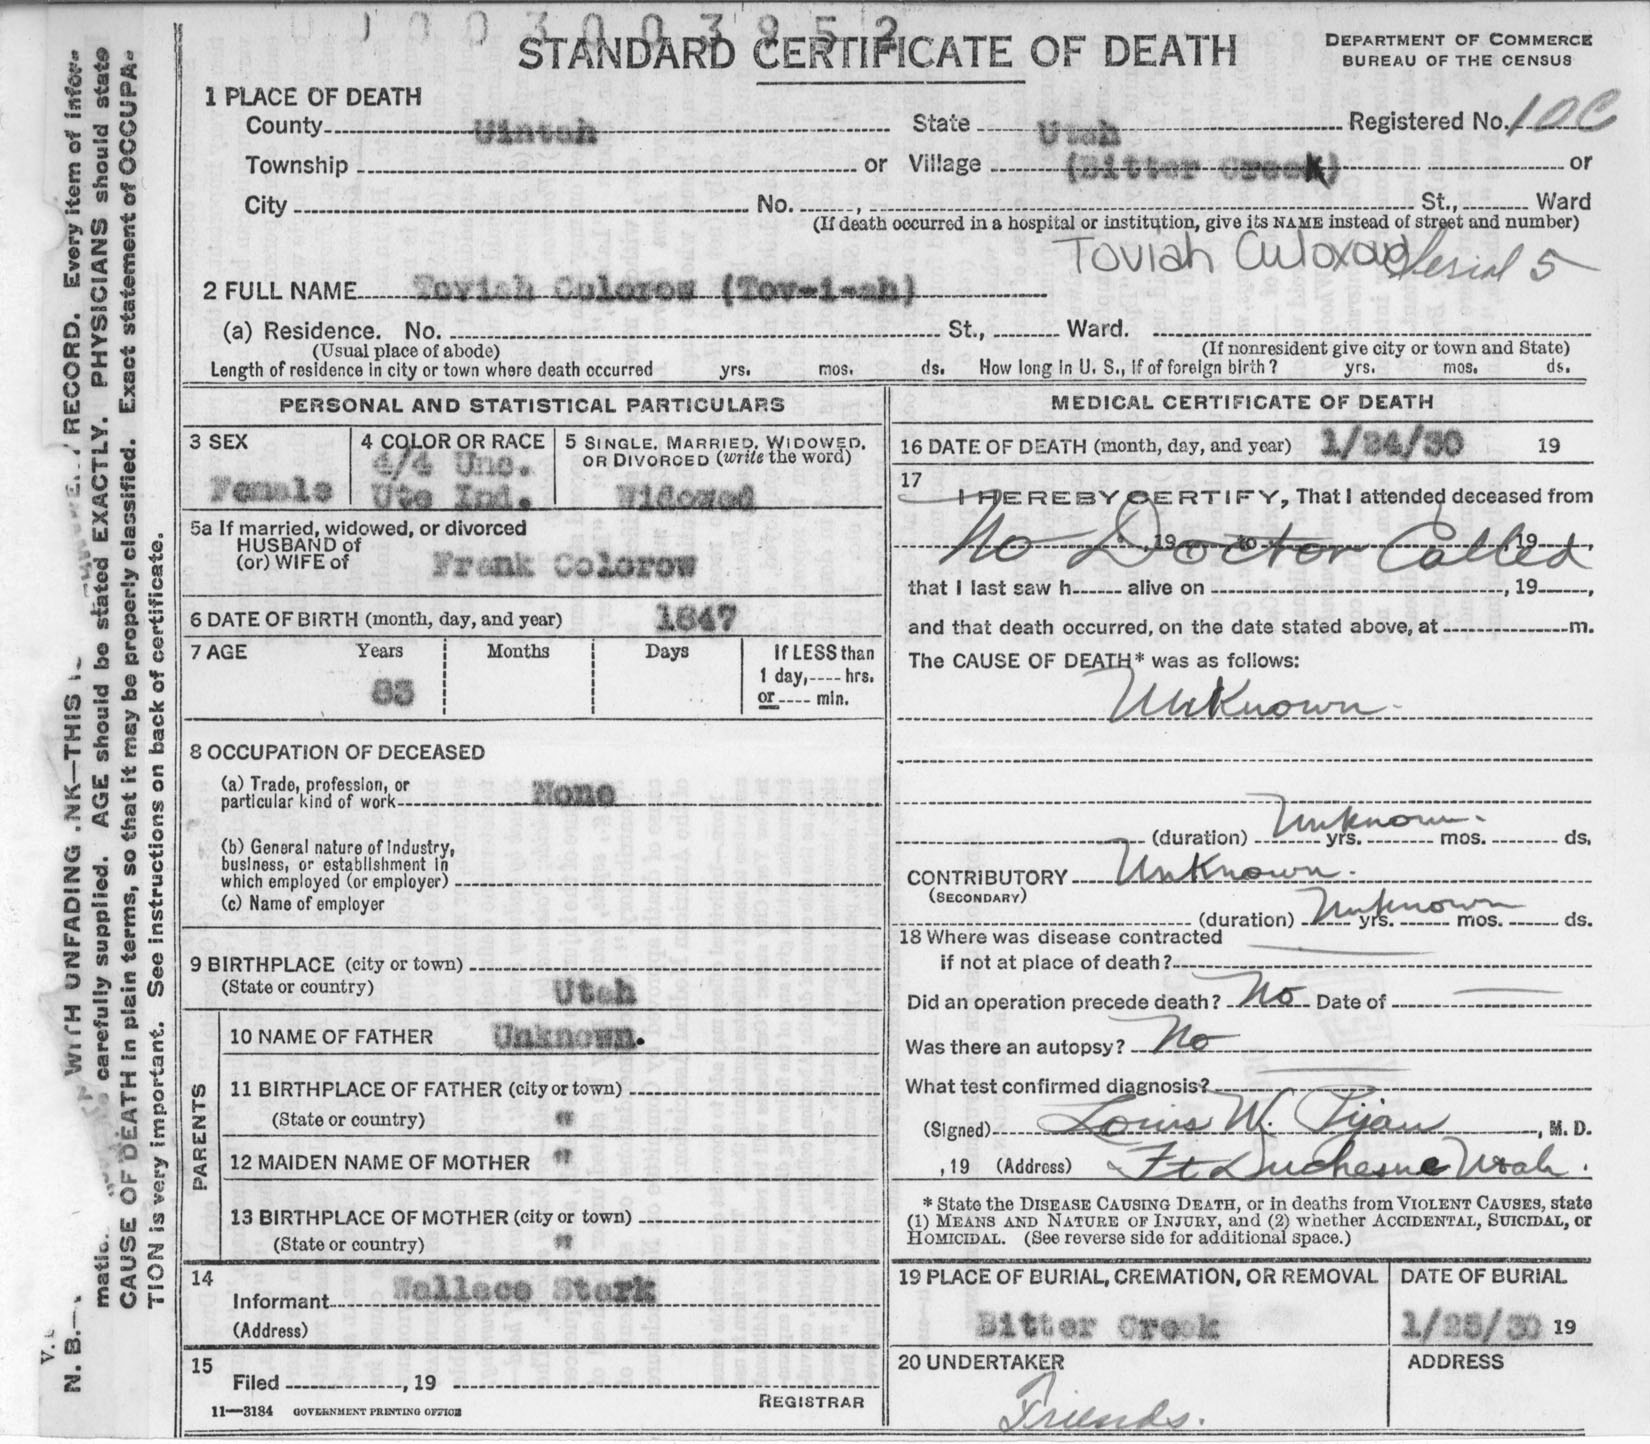 0003003952
STANDARD CERTIFICATE OF DEATH
DEPARTMENT OF COMMERCE
BUREAU OF THE CENSUS
1 PLACE OF DEATH
County Uintah State Utah Registered No. 10C
Township or Village (Bitter Creek) or
City No. , St., Ward
(If death occurred in a hospital or institution, give its NAME instead of street and number)
Toviah Serial 5
2 FULL NAME Toviah Colorow (Tov-i-ah)
(a) Residence. No. St., Ward.
(Usual place of abode) (If nonresident give city or town and State)
Length of residence in city or town where death occurred yrs. mos. ds. How long in U. S., if of foreign birth? yrs. mos. ds.
PERSONAL AND STATISTICAL PARTICULARS
3 SEX
Female
4 COLOR OR RACE
4/4 Unc.
Ute Ind.
5 SINGLE, MARRIED, WIDOWED,
OR DIVORCED (write the word)
Widowed
5a If married, widowed, or divorced
HUSBAND of
(or) WIFE of Frank Colorow
6 DATE OF BIRTH (month, day, and year) 1847
7 AGE Years Months Days If LESS than
1 day, hrs.
83 or min.
8 OCCUPATION OF DECEASED
(a) Trade, profession, or
particular kind of work None
(b) General nature of industry,
business, or establishment in
which employed (or employer)
(c) Name of employer
9 BIRTHPLACE (city or town)
(State or country) Utah
PARENTS
10 NAME OF FATHER Unknown.
11 BIRTHPLACE OF FATHER (city or town)
(State or country) "
12 MAIDEN NAME OF MOTHER "
13 BIRTHPLACE OF MOTHER (city or town)
(State or country) "
14
Informant Wallace Stark
(Address)
15
Filed , 19
REGISTRAR
11—3184 GOVERNMENT PRINTING OFFICE
MEDICAL CERTIFICATE OF DEATH
16 DATE OF DEATH (month, day, and year) 1/24/30 19
17
I HEREBY CERTIFY, That I attended deceased from
, 19 to , 19 ,
No Doctor Called
that I last saw h alive on , 19 ,
and that death occurred, on the date stated above, at m.
The CAUSE OF DEATH* was as follows:
Unknown.
(duration) Unknown. yrs. mos. ds.
CONTRIBUTORY Unknown.
(SECONDARY)
(duration) Unknown yrs. mos. ds.
18 Where was disease contracted
if not at place of death?
Did an operation precede death? No Date of
Was there an autopsy? No
What test confirmed diagnosis?
(Signed) Louis W. , M. D.
, 19 (Address) Ft Duchesne Utah.
* State the DISEASE CAUSING DEATH, or in deaths from VIOLENT CAUSES, state
(1) MEANS AND NATURE OF INJURY, and (2) whether ACCIDENTAL, SUICIDAL, or
HOMICIDAL. (See reverse side for additional space.)
19 PLACE OF BURIAL, CREMATION, OR REMOVAL
Bitter Creek
DATE OF BURIAL
1/25/30 19
20 UNDERTAKER
Friends.
ADDRESS
N. B.— WITH UNFADING INK—THIS RECORD. Every item of infor-
mation carefully supplied. AGE should be stated EXACTLY. PHYSICIANS should state
CAUSE OF DEATH in plain terms, so that it may be properly classified. Exact statement of OCCUPA-
TION is very important. See instructions on back of certificate.